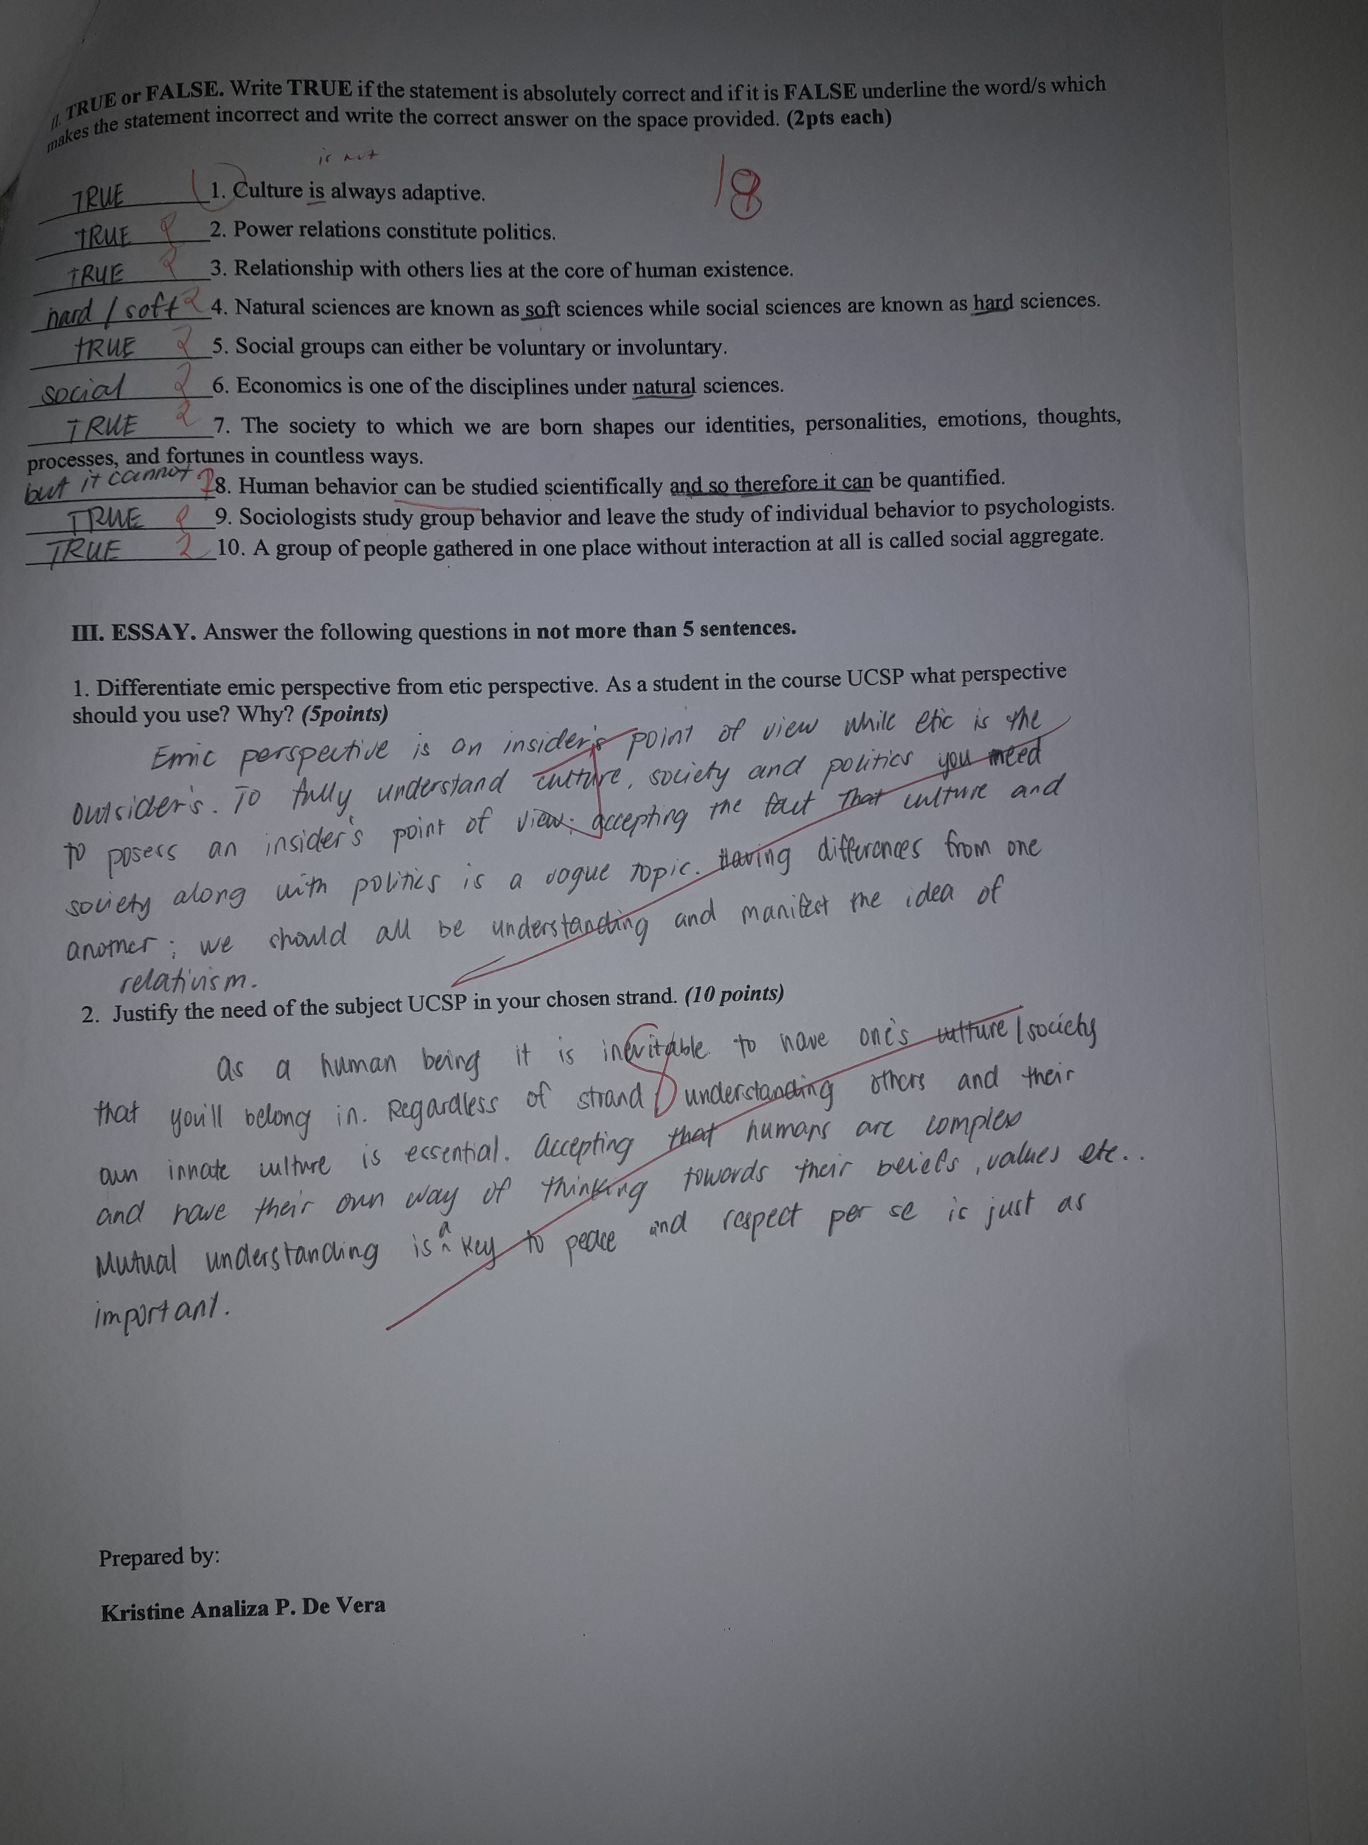 II. TRUE or FALSE. Write TRUE if the statement is absolutely correct and if it is FALSE underline the word/s which
makes the statement incorrect and write the correct answer on the space provided. (2pts each)
is not
18
TRUE 1. Culture is always adaptive.
TRUE 2 2. Power relations constitute politics.
TRUE 2 3. Relationship with others lies at the core of human existence.
hard / soft 2 4. Natural sciences are known as soft sciences while social sciences are known as hard sciences.
TRUE 2 5. Social groups can either be voluntary or involuntary.
social 2 6. Economics is one of the disciplines under natural sciences.
TRUE 2 7. The society to which we are born shapes our identities, personalities, emotions, thoughts,
processes, and fortunes in countless ways.
but it cannot 2 8. Human behavior can be studied scientifically and so therefore it can be quantified.
TRUE 2 9. Sociologists study group behavior and leave the study of individual behavior to psychologists.
TRUE 2 10. A group of people gathered in one place without interaction at all is called social aggregate.
III. ESSAY. Answer the following questions in not more than 5 sentences.
1. Differentiate emic perspective from etic perspective. As a student in the course UCSP what perspective
should you use? Why? (5points)
Emic perspective is an insider's point of view while etic is the
outsider's. To fully understand culture, society and politics you need
to posess an insider's point of view; accepting the fact that culture and
society along with politics is a vogue topic. Having differences from one
another; we should all be understanding and manifest the idea of
relativism.
2. Justify the need of the subject UCSP in your chosen strand. (10 points)
8
As a human being it is inevitable to have one's culture / society
that you'll belong in. Regardless of strand understanding others and their
own innate culture is essential. Accepting that humans are complex
and have their own way of thinking towards their beliefs, values etc..
Mutual understanding is a key to peace and respect per se is just as
important.
Prepared by:
Kristine Analiza P. De Vera